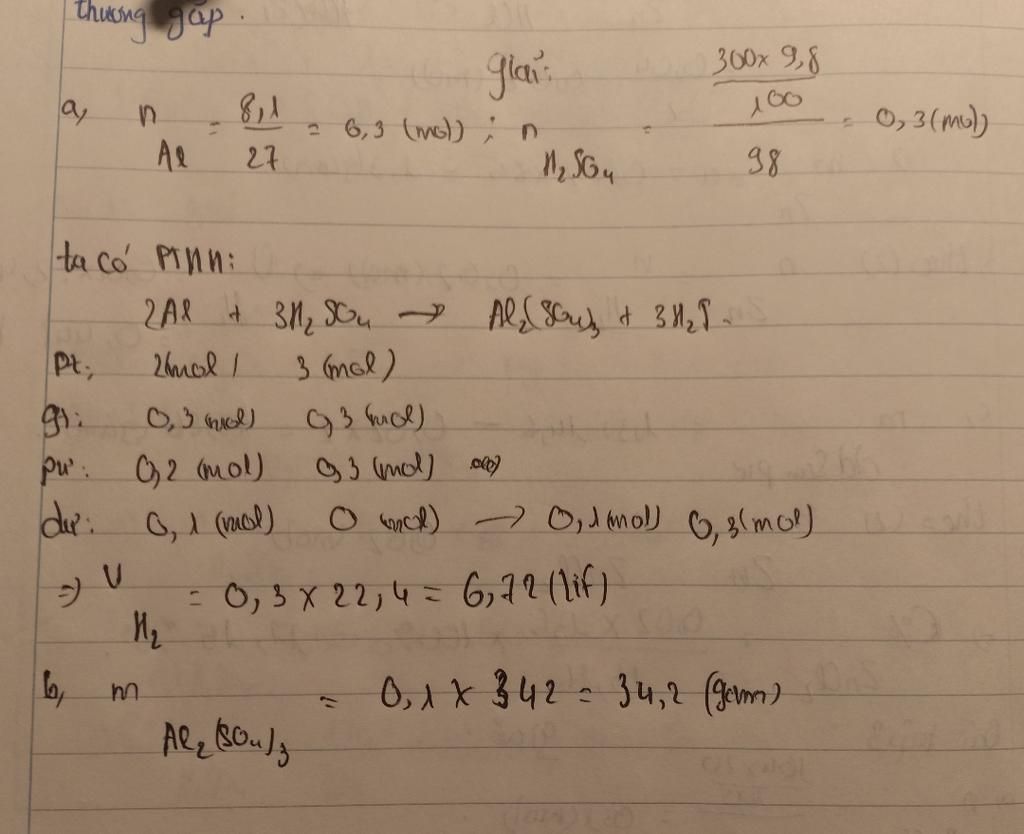 thường gặp.
giải:
a, n Al = 8,1/27 = 0,3 (mol) ; n H₂SO₄ = (300 x 9,8/100)/98 = 0,3 (mol)
ta có PTHH:
2Al + 3H₂SO₄ → Al₂(SO₄)₃ + 3H₂↑.
Pt: 2(mol) 3 (mol)
gt: 0,3 (mol) 0,3 (mol)
pư: 0,2 (mol) 0,3 (mol)
dư: 0,1 (mol) 0 (mol) → 0,1 (mol) 0,3 (mol)
=> V H₂ = 0,3 x 22,4 = 6,72 (lít)
b, m Al₂(SO₄)₃ = 0,1 x 342 = 34,2 (gam)